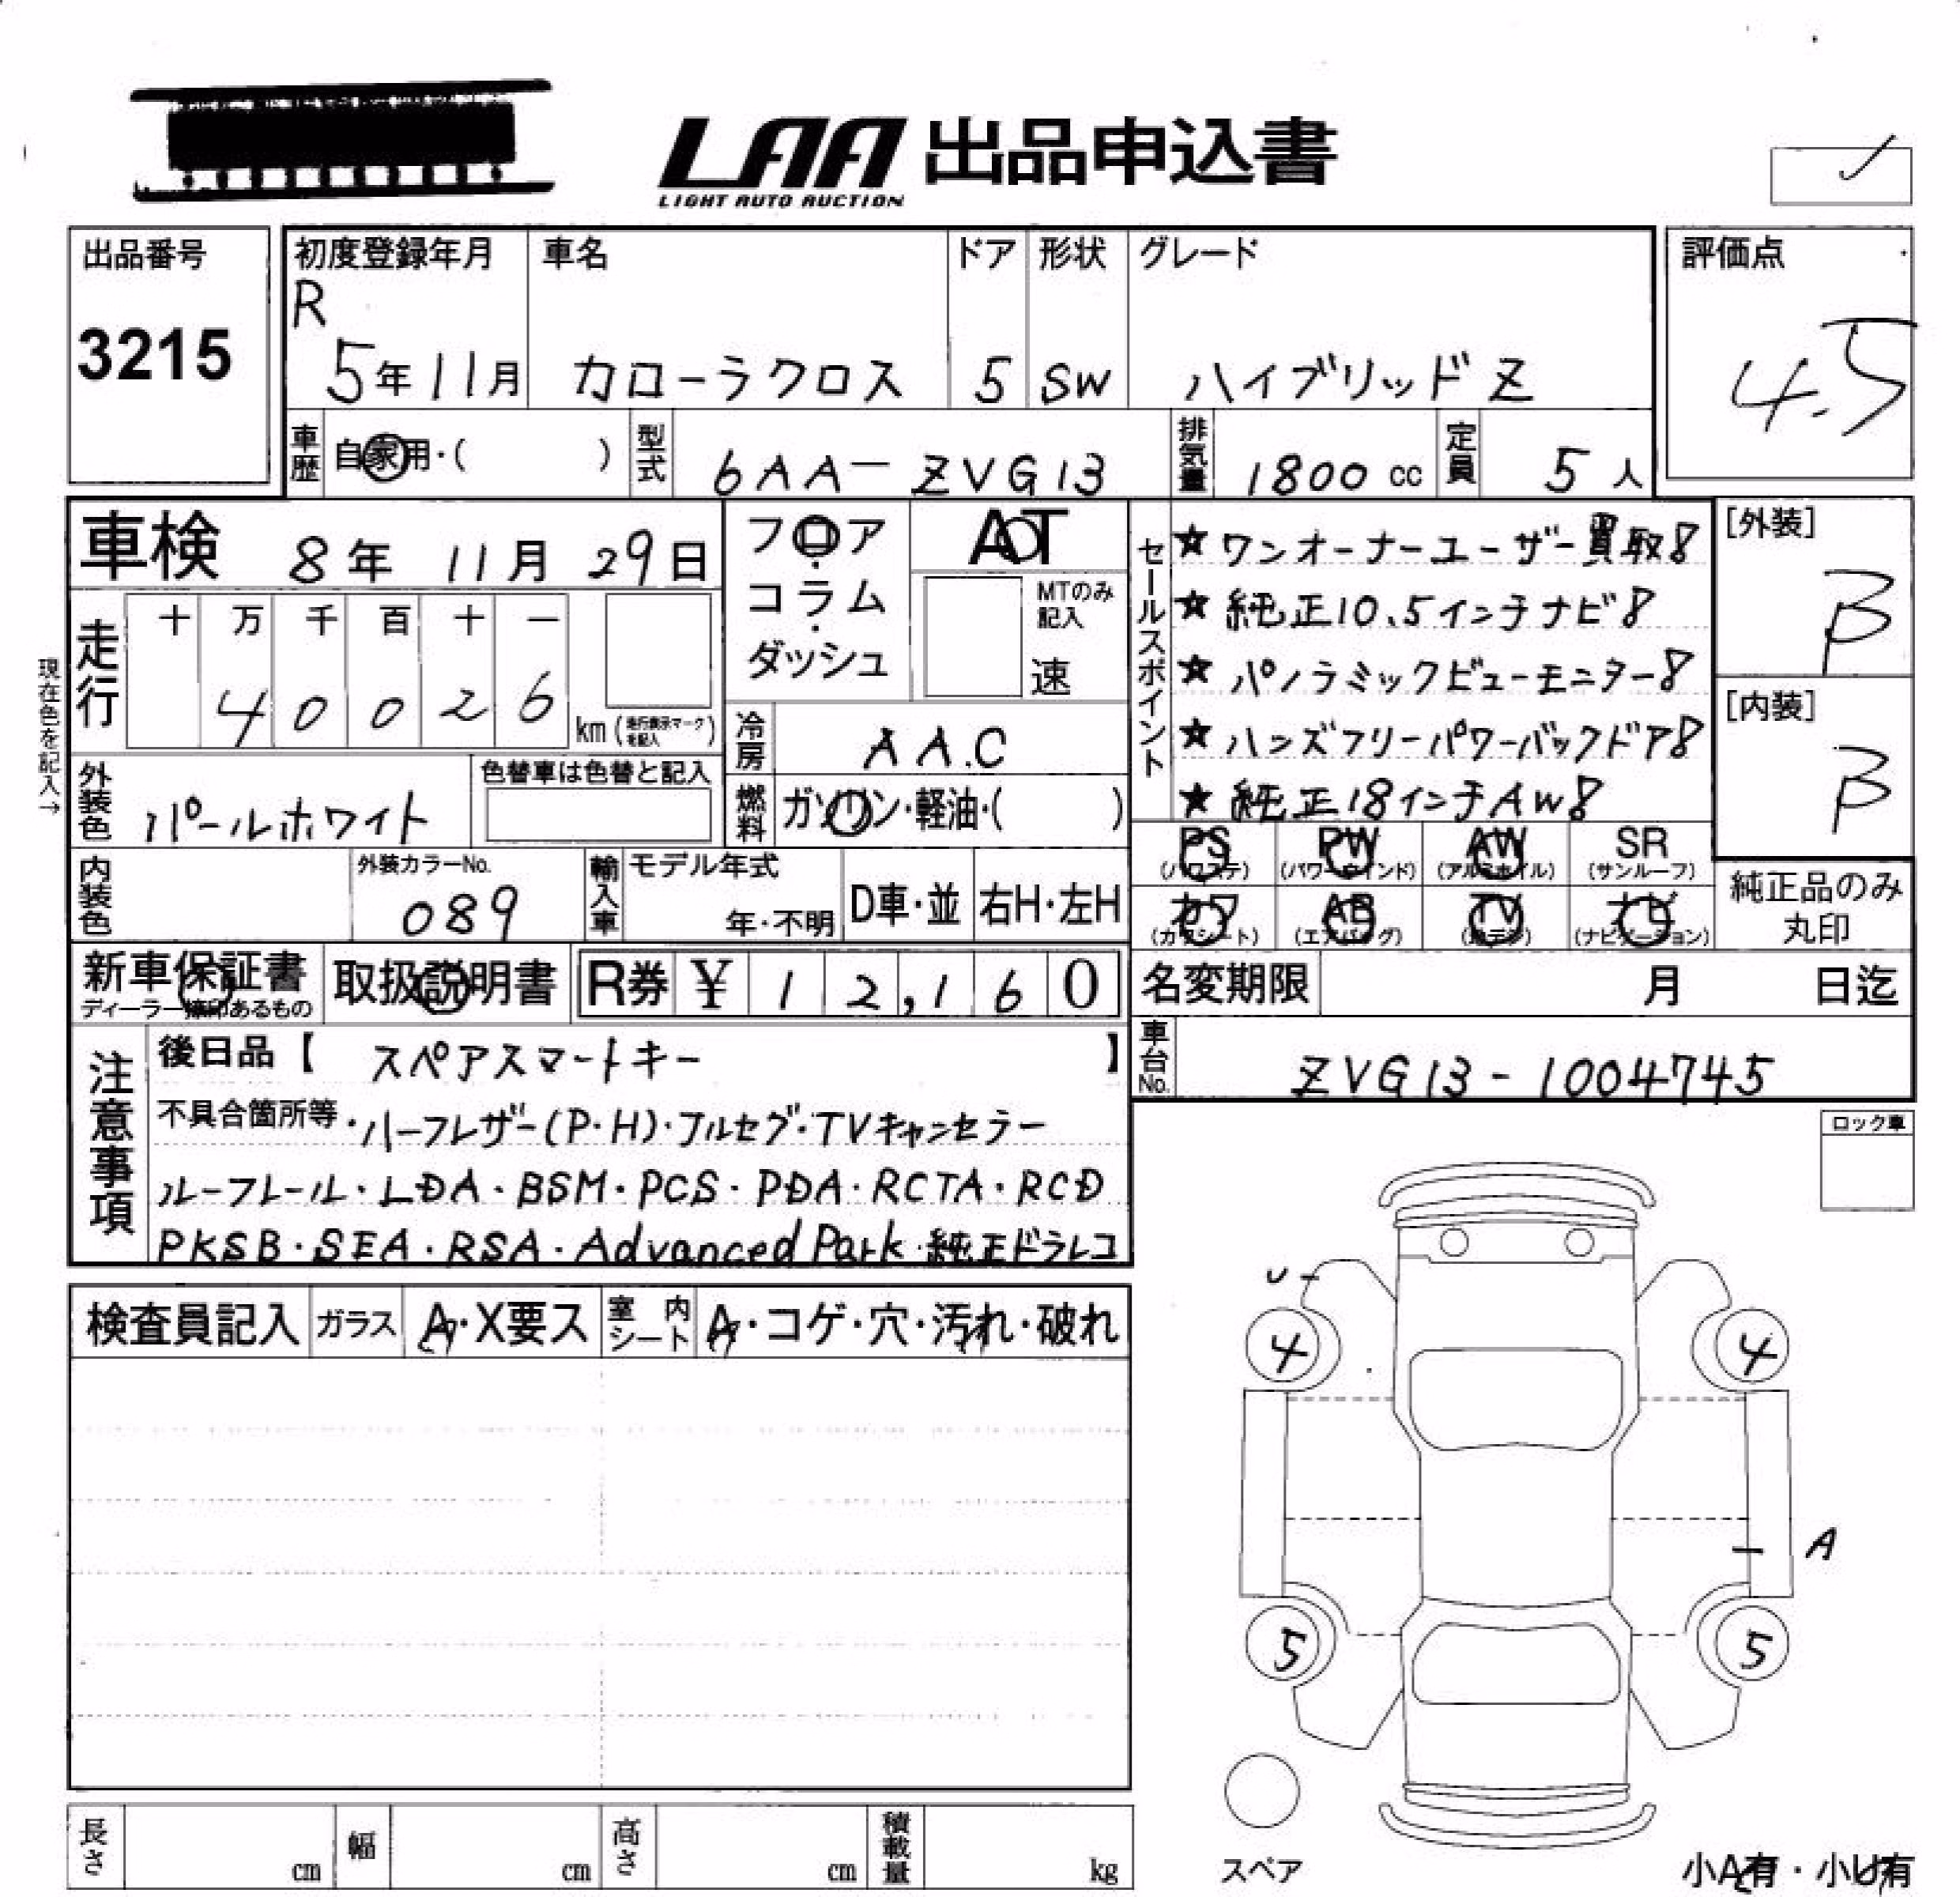 LAA 出品申込書
LIGHT AUTO AUCTION
出品番号
3215
初度登録年月 車名 ドア 形状 グレード 評価点
R
5年11月 カローラクロス 5 SW ハイブリッドZ 4.5
車歴 自家用・( ) 型式 6AA-ZVG13 排気量 1800cc 定員 5人
車検 8年 11月 29日
フロア・コラム・ダッシュ
AT
MTのみ記入
速
セールスポイント
★ワンオーナーユーザー買取!
★純正10.5インチナビ!
★パノラミックビューモニター!
★ハンズフリーパワーバックドア!
★純正18インチAW!
[外装]
B
[内装]
B
現在色を記入→
走行 十 万 千 百 十 一
4 0 0 2 6 km (走行表示マークを記入)
冷房 AAC
外装色 パールホワイト 色替車は色替と記入
燃料 ガソリン・軽油・( )
PS (パワステ) PW (パワーウインド) AW (アルミホイル) SR (サンルーフ)
カワ (カワシート) AB (エアバッグ) TV (地デジ) ナビ (ナビゲーション)
純正品のみ丸印
内装色 外装カラーNo. 089 輸入車 モデル年式 年・不明 D車・並 右H・左H
新車保証書 取扱説明書 R券 ¥ 12,160
ディーラー捺印あるもの
名変期限 月 日迄
車台No. ZVG13-1004745
注意事項
後日品【 スペアスマートキー 】
不具合箇所等・ハーフレザー(P・H)・フルセグ・TVキャンセラー
ルーフレール・LDA・BSM・PCS・PDA・RCTA・RCD
PKSB・SEA・RSA・Advanced Park・純正ドラレコ
ロック車
検査員記入 ガラス A・X要ス 室内シート A・コゲ・穴・汚れ・破れ
4 4
A
5 5
スペア
小A有・小U有
長さ cm 幅 cm 高さ cm 積載量 kg